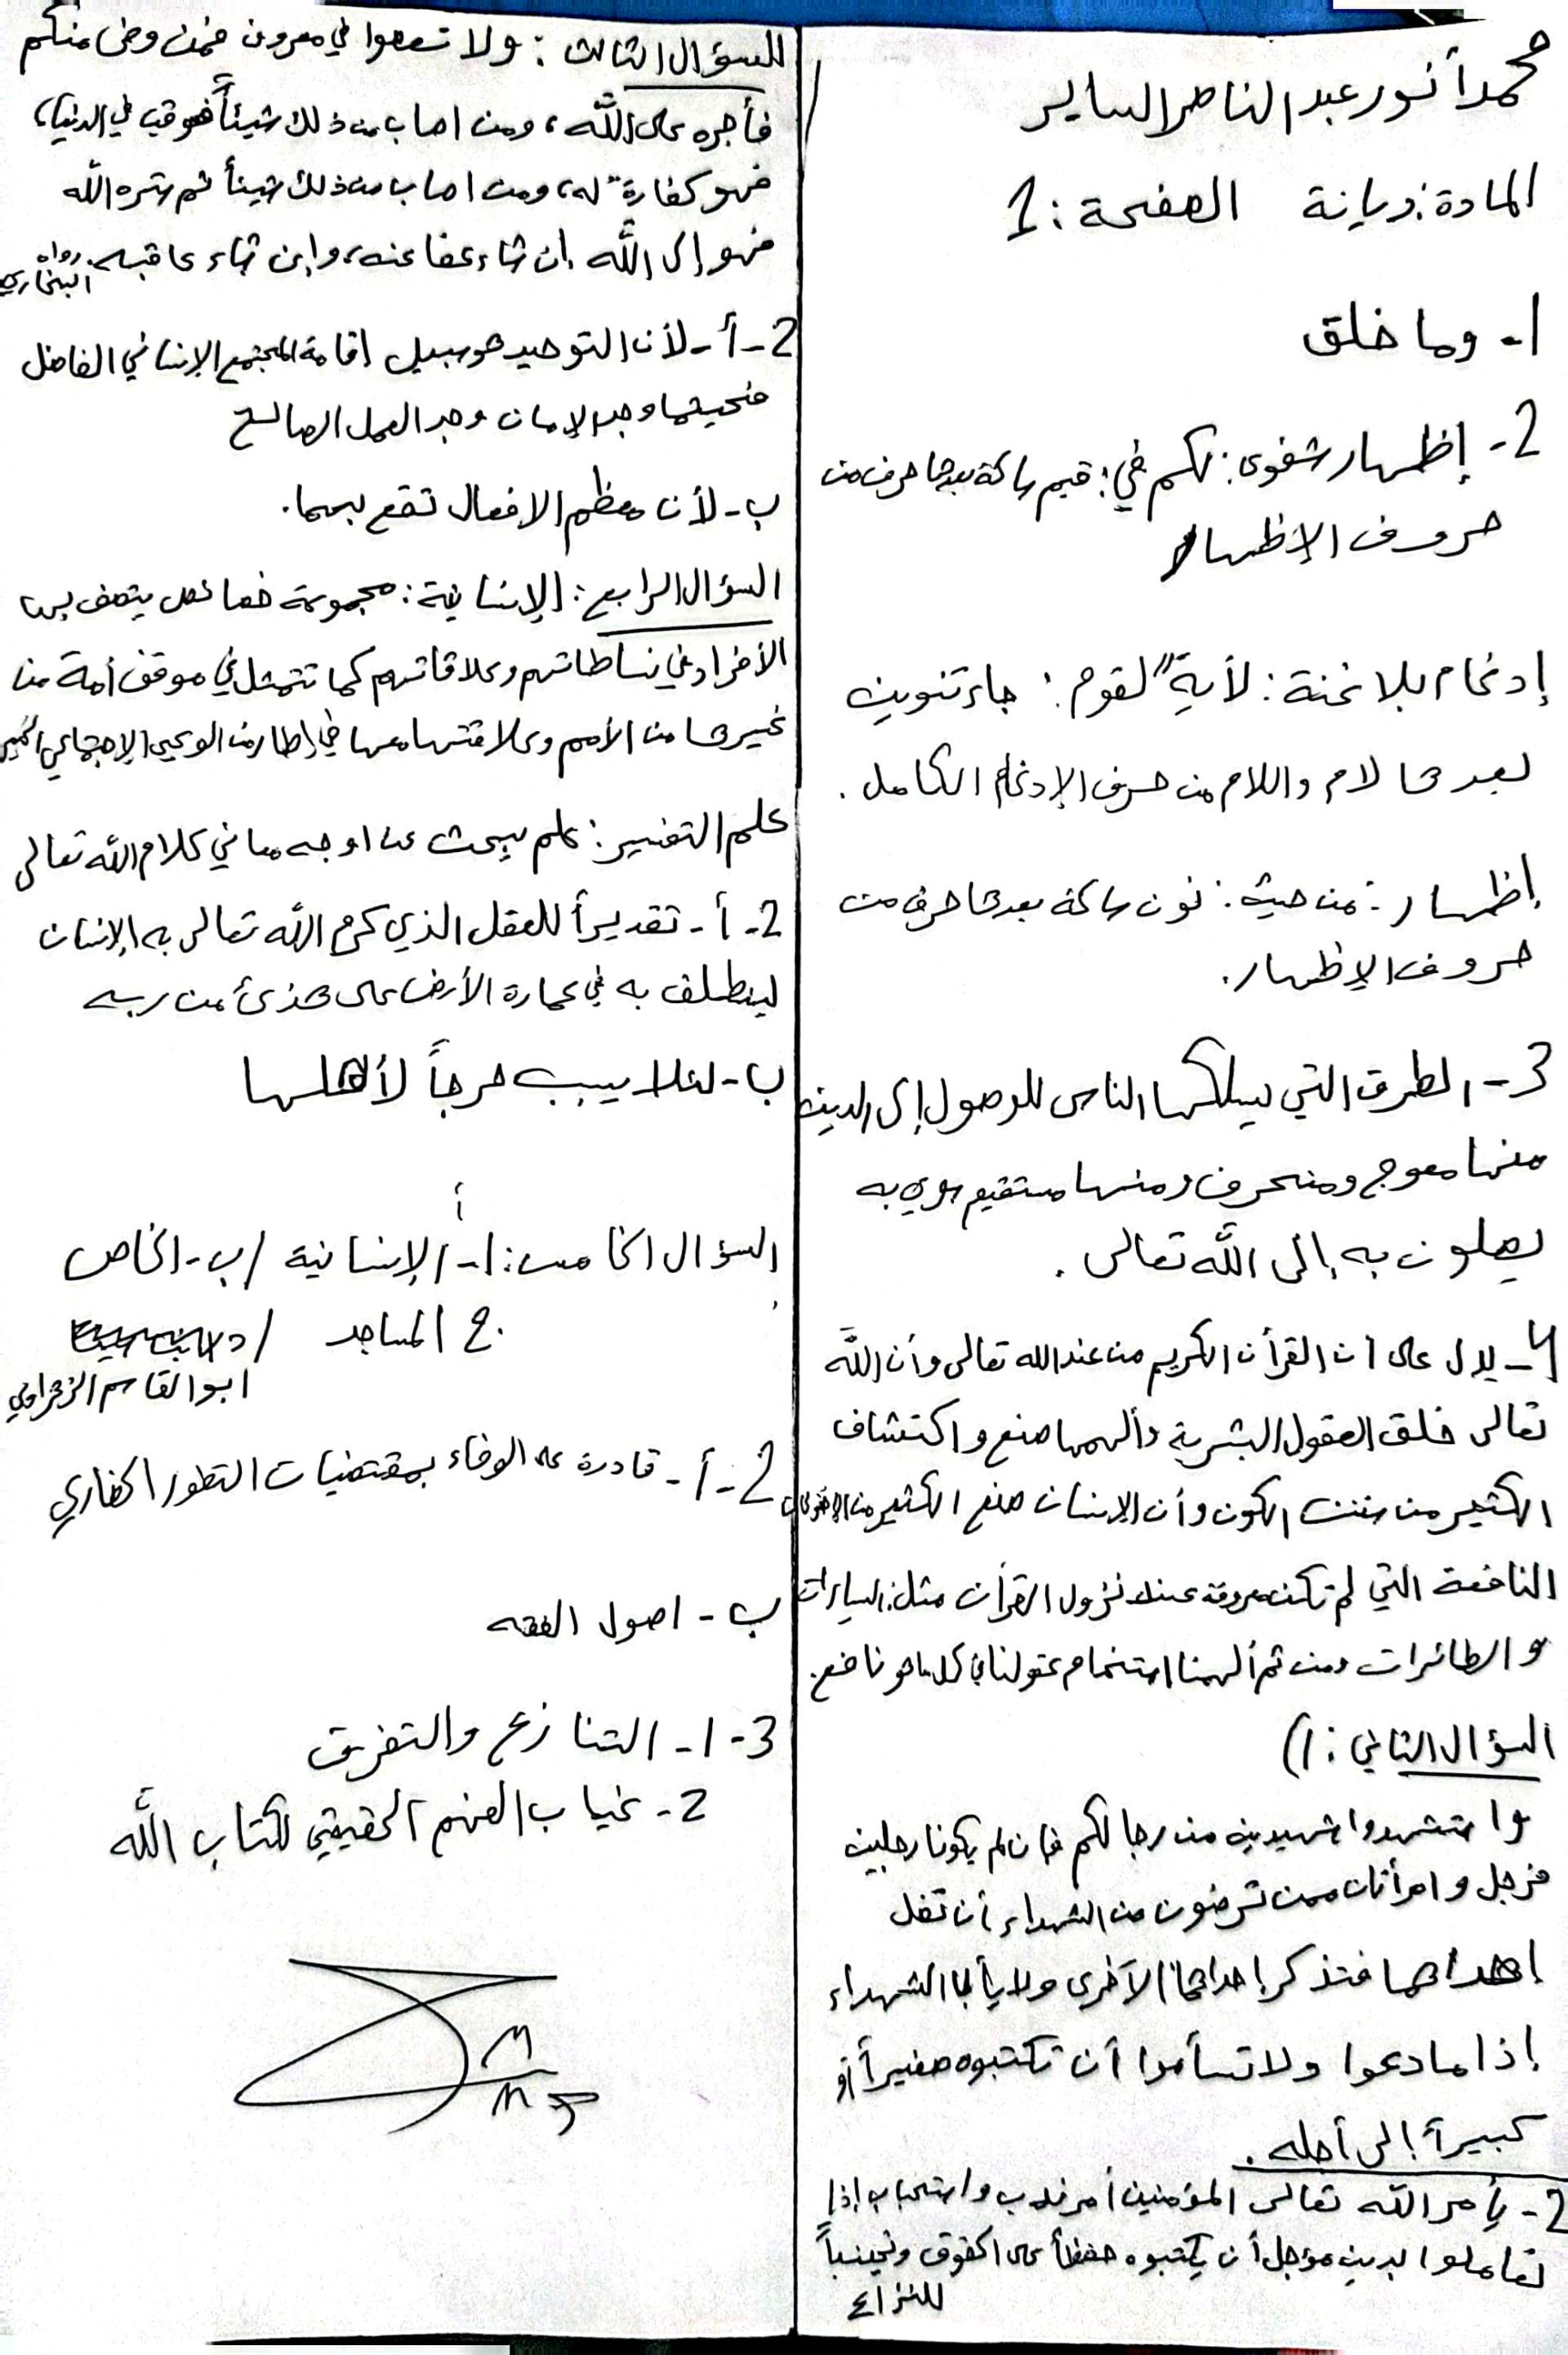 محمد أنور عبد الناصر الساير
المادة: ديانة الصفحة: 1
1- وما خلق
2- إظهار شفوي: لكم في: قيم ساكنة بعدها حرف من
حروف الإظهار
إدغام بلا غنة: لأيةً لقوم: جاء تنوين
بعدها لام واللام من حرف الإدغام الكامل.
إظهار: من حيث: نون ساكنة بعدها حرف من
حروف الإظهار.
3- الطرق التي يسلكها الناس للوصول إلى الدين
منها معوج ومنحرف ومنها مستقيم سوي به
يصلون به إلى الله تعالى.
4- يدل على ان القرأن الكريم من عند الله تعالى وأن الله
تعالى خلق العقول البشرية وألهمها صنع واكتشاف
الكثير من سنن الكون وأن الإنسان صنع الكثير من
النافعة التي لم تكن معروفة عند نزول القرأن مثل: السيارات
والطائرات ومن ثم ألهمنا استخدام عقولنا في كل ما هو نافع.
السؤال الثاني: 1)
واستشهدوا شهيدين من رجالكم فإن لم يكونا رجلين
فرجل وامرأتان ممن ترضون من الشهداء أن تضل
احداهما فتذكر إحداهما الآخرى ولا يأبا الشهداء
إذا ما دعوا ولا تسأموا أن تكتبوه صغيراً أو
كبيرأ إلى أجله.
2- يأمر الله تعالى المؤمنين أمر ندب واستحباب إذا
تعاملوا بدين مؤجل أن يكتبوه حفظأ على الحقوق وتجنباً
للنزاع
السؤال الثالث: ولا تعصوا في معروف فمن وفى منكم
فأجره على الله، ومن اصاب من ذلك شيئاً فعوقب في الدنيا،
فهو كفارة له، ومن اصاب من ذلك شيئأ ثم ستره الله
فهو إلى الله إن شاء عفا عنه، وإن شاء عاقبه. رواه
البخاري
2- أ- لأن التوحيد هو سبيل اقامة المجتمع الإنساني الفاضل
فحيثما وجد الإمان وجد العمل الصالح
ب- لأن معظم الافعال تقع بهما.
السؤال الرابع: الإنسانية: مجموعة خصائص يتصف بها
الأفراد في نساطاتهم وعلاقاتهم كما تتمثل في موقف أمة من
غيرها من الأمم وعلاقتها معها في إطار من الوعي الإجتماعي
علم التفسير: علم يبحث عن اوجه معاني كلام الله تعالى
2- أ- تقديرأ للعقل الذي كرم الله تعالى به الإنسان
لينطلق به في عمارة الأرض على هدىً من ربه
ب- لئلا يسبب حرجاً لأهلها
السؤال الخامس: 1- أ الإنسانية / ب- الخاص
ج المساجد / د
ابو القاسم الزهراوي
2- أ- قادرة على الوفاء بمقتضيات التطور الحضاري
ب- اصول الفقه
3- 1- التنازع والتفريق
2- غياب الفهم الحقيقي لكتاب الله